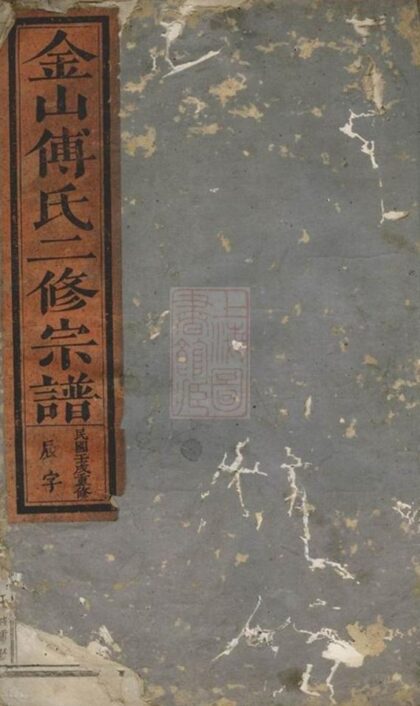 金山傅氏二修宗譜
民國壬戌重修
辰字
上海圖
書館藏